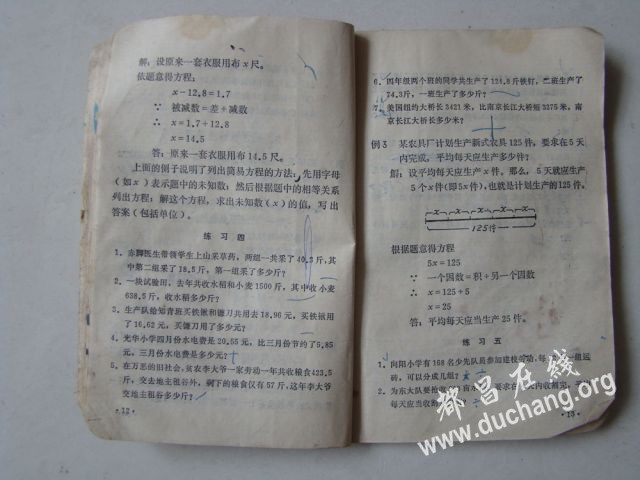 解：设原来一套衣服用布x尺。
依题意得方程：
x－12.8＝1.7
∵ 被减数＝差＋减数
∴ x＝1.7＋12.8
x＝14.5
答：原来一套衣服用布14.5尺。
上面的例子说明了列出简易方程的方法，先用字母
（如x）表示题中的未知数；然后根据题中的相等关系
列出方程；解这个方程，求出未知数（x）的值，写出
答案（包括单位）。
练习四
1. 赤脚医生带领学生上山采草药，两组一共采了40.3斤，其
中第二组采了18.5斤，第一组采了多少斤？
2. 一块试验田，去年共收水稻和小麦1500斤，其中收小麦
638.5斤，收水稻多少斤？
3. 生产队给知青班买铁锹和镰刀共用去18.96元，买铁锹用
了16.62元，买镰刀用了多少元？
4. 光华小学四月份水电费是20.55元，比三月份节约了5.85
元，三月份水电费是多少元？
5. 在万恶的旧社会，贫农李大爷一家劳动一年共收粮食423.5
斤，交去地主租谷外，剩下的粮食仅有57斤，这年李大爷
交地主租谷多少斤？
·12·
6. 四年级两个班的同学共生产了124.8斤铁钉，二班生产了
74.3斤，一班生产了多少斤？
7. 美国纽约大桥长3421米，比南京长江大桥短3275米，南
京长江大桥长多少米？
例3 某农具厂计划生产新式农具125件，要求在5天
内完成，平均每天应生产多少件？
解：设平均每天应生产x件。那么，5天就应生产
5个x件（即5x件），也就是计划生产的125件。
x x x x x
125件
根据题意得方程
5x＝125
∵ 一个因数＝积÷另一个因数
∴ x＝125÷5
x＝25
答：平均每天应当生产25件。
练习五
1. 向阳小学有168名少先队员参加建校劳动，每 一组运
砖，可以分成几组？
2. 为东大队要抢收 亩水 要求在 天内收割完，平均
每天应当收割
·13·
都昌在线
www.duchang.org